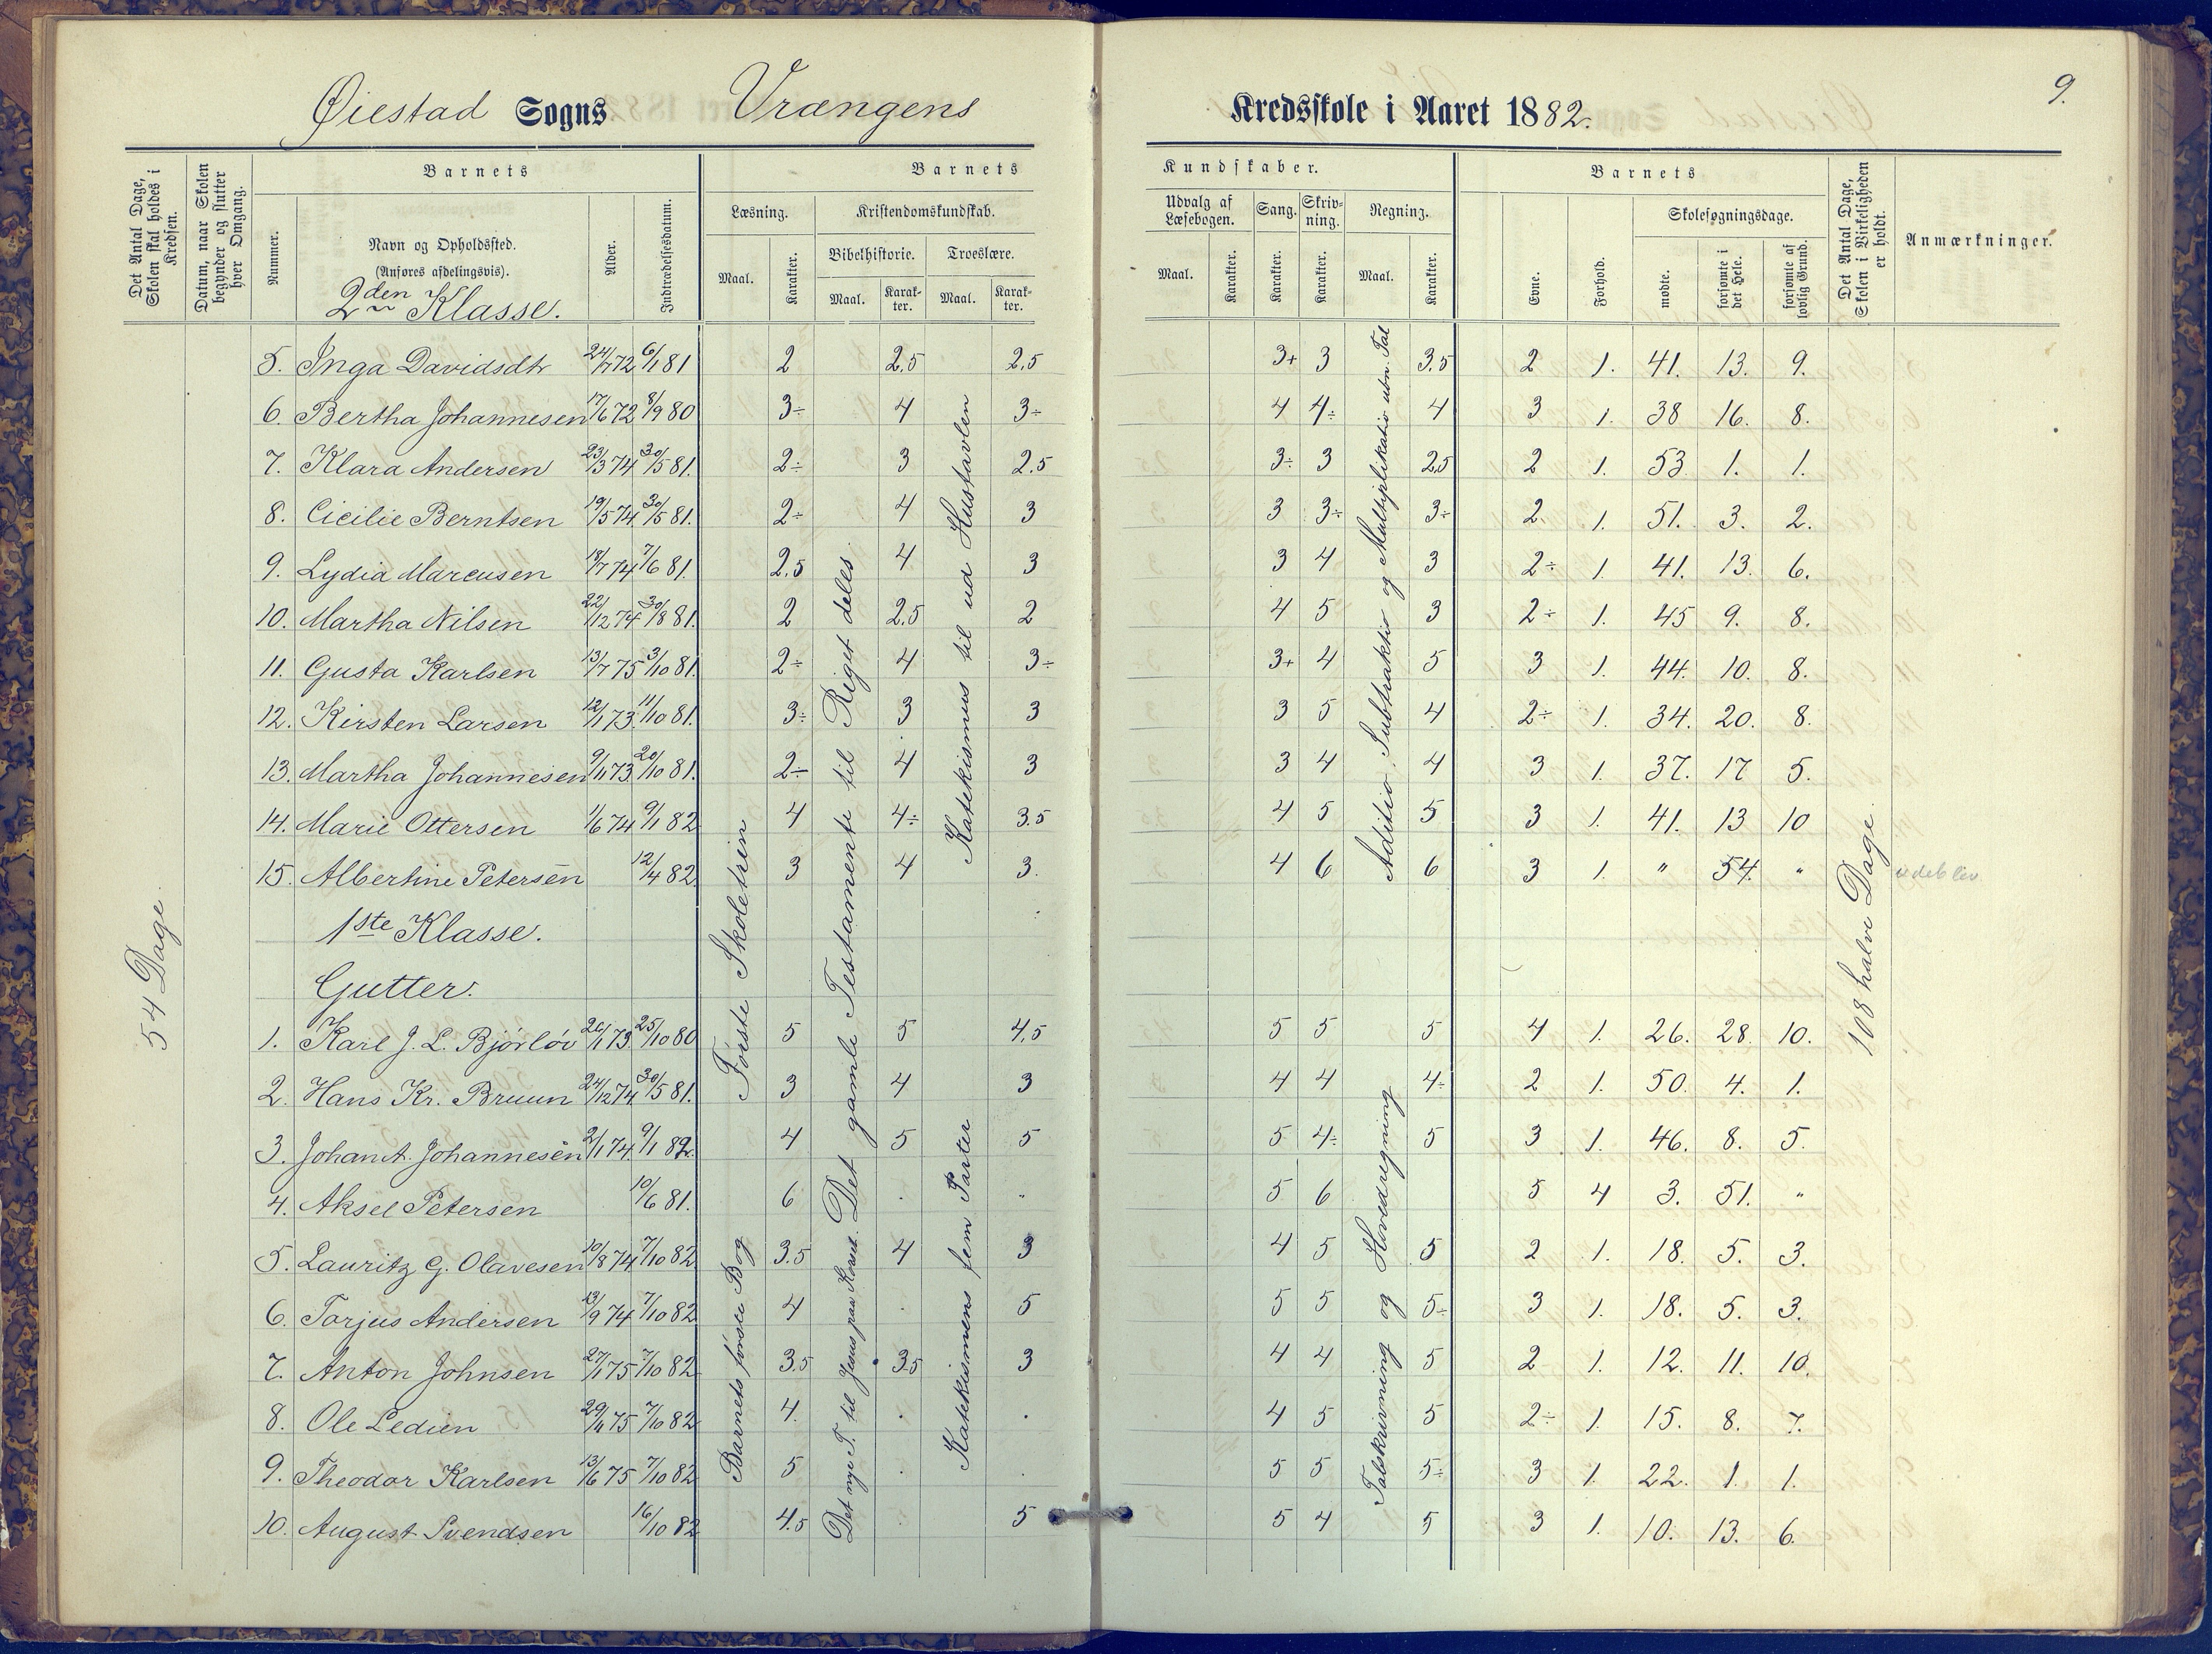 Øiestad Sogns Vrængens Kredsskole i Aaret 1882.
9.
Det Antal Dage, Skolen skal holdes i Kredsen.
Datum, naar Skolen begynder og slutter hver Omgang.
Barnets
Nummer.
Navn og Opholdssted.
(Anføres afdelingsvis).
2den Klasse.
Alder.
Indtrædelsesdatum.
Barnets
Læsning.
Maal.
Karakter.
Kristendomskundskab.
Bibelhistorie.
Maal.
Karakter.
Troeslære.
Maal.
Karakter.
Kundskaber.
Udvalg af Læsebogen.
Maal.
Karakter.
Sang.
Karakter.
Skrivning.
Karakter.
Regning.
Maal.
Karakter.
Barnets
Evne.
Forhold.
Skolesøgningsdage.
mødte.
forsømte i det Hele.
forsømte af lovlig Grund.
Det Antal Dage, Skolen i Virkeligheden er holdt.
Anmærkninger.
5. Inga Davidsdtr 24/7 72 6/1 81 2 2,5 2,5 3+ 3 3.5 2 1. 41. 13. 9.
6. Bertha Johannesen 17/6 72 8/9 80 3÷ 4 3÷ 4 4÷ 4 3 1. 38 16. 8.
7. Klara Andersen 23/3 74 30/5 81. 2÷ 3 2.5 3÷ 3 2,5 2 1. 53 1. 1.
8. Cicilie Berntsen 19/5 74 30/5 81. 2÷ 4 3 3 3÷ 3÷ 2. 1. 51. 3. 2.
9. Lydia Marcusen 18/7 74 7/6 81. 2,5 4 3 3 4 3 2÷ 1. 41. 13. 6.
10. Martha Nilsen 22/12 74 30/8 81. 2 2,5 2 4 5 3 2÷ 1. 45 9. 8.
11. Gusta Karlsen 13/7 75 3/10 81. 2÷ 4 3÷ 3+ 4 5 3 1. 44. 10. 8.
12. Kirsten Larsen 12/1 73. 11/10 81. 3÷ 3 3 3 5 4 2÷ 1. 34. 20. 8.
13. Martha Johannesen 9/11 73 20/10 81. 2÷ 4 3 3 4 4 3 1. 37. 17 5.
14. Marie Ottersen 1/6 74 9/1 82 4 4÷ 3.5 4 5 5 3 1. 41. 13 10
15. Albertine Petersen 12/4 82. 3 4 3. 4 6 6 3 1. " 54. " udeblev
1ste Klasse.
Gutter.
1. Karl J. L. Bjørløv 20/1 73. 25/10 80 5 5 4,5 5 5 5 4 1. 26. 28. 10.
2. Hans Kr. Bruun 24/12 74 30/5 81. 3 4 3 4 4 4÷ 2 1. 50. 4. 1.
3. Johan A. Johannesen 2/1 74 9/1 82. 4 5 5 5 4÷ 5 3 1. 46. 8. 5.
4. Aksel Petersen 10/6 81. 6 . " 5 6 5 4 3. 51. "
5. Lauritz G. Olavesen 10/8 74 7/10 82 3.5 4 3 4 5 5 2 1. 18. 5. 3.
6. Torjus Andersen 13/9 74 7/10 82 4 . 5 5 5 5÷ 3 1. 18. 5. 3.
7. Anton Johnsen 27/1 75 7/10 82 3.5 3.5 3 4 4 5 2 1. 12. 11. 10.
8. Ole Ledien 29/11 75 7/10 82 4. . . 4 5 5 2÷ 1. 15. 8. 7.
9. Theodor Karlsen 13/6 75 7/10 82 5 . . 5 5 5÷ 3 1. 22. 1. 1.
10. August Svendsen 16/10 82 4.5 5 5 4 5 3 1. 10. 13. 6.
54 Dage.
Første Skoletrin
Barnets første Bog
Det gamle Testamente til Riget deles.
Det nye T. til Jesus paa Korset.
Katekismus til ud Hustavlen
Katekismens fem Parter
Aditio, Subtraktio og Multiplikatio ubn. Tal
Talskrivning og Hovedregning
108 halve Dage.